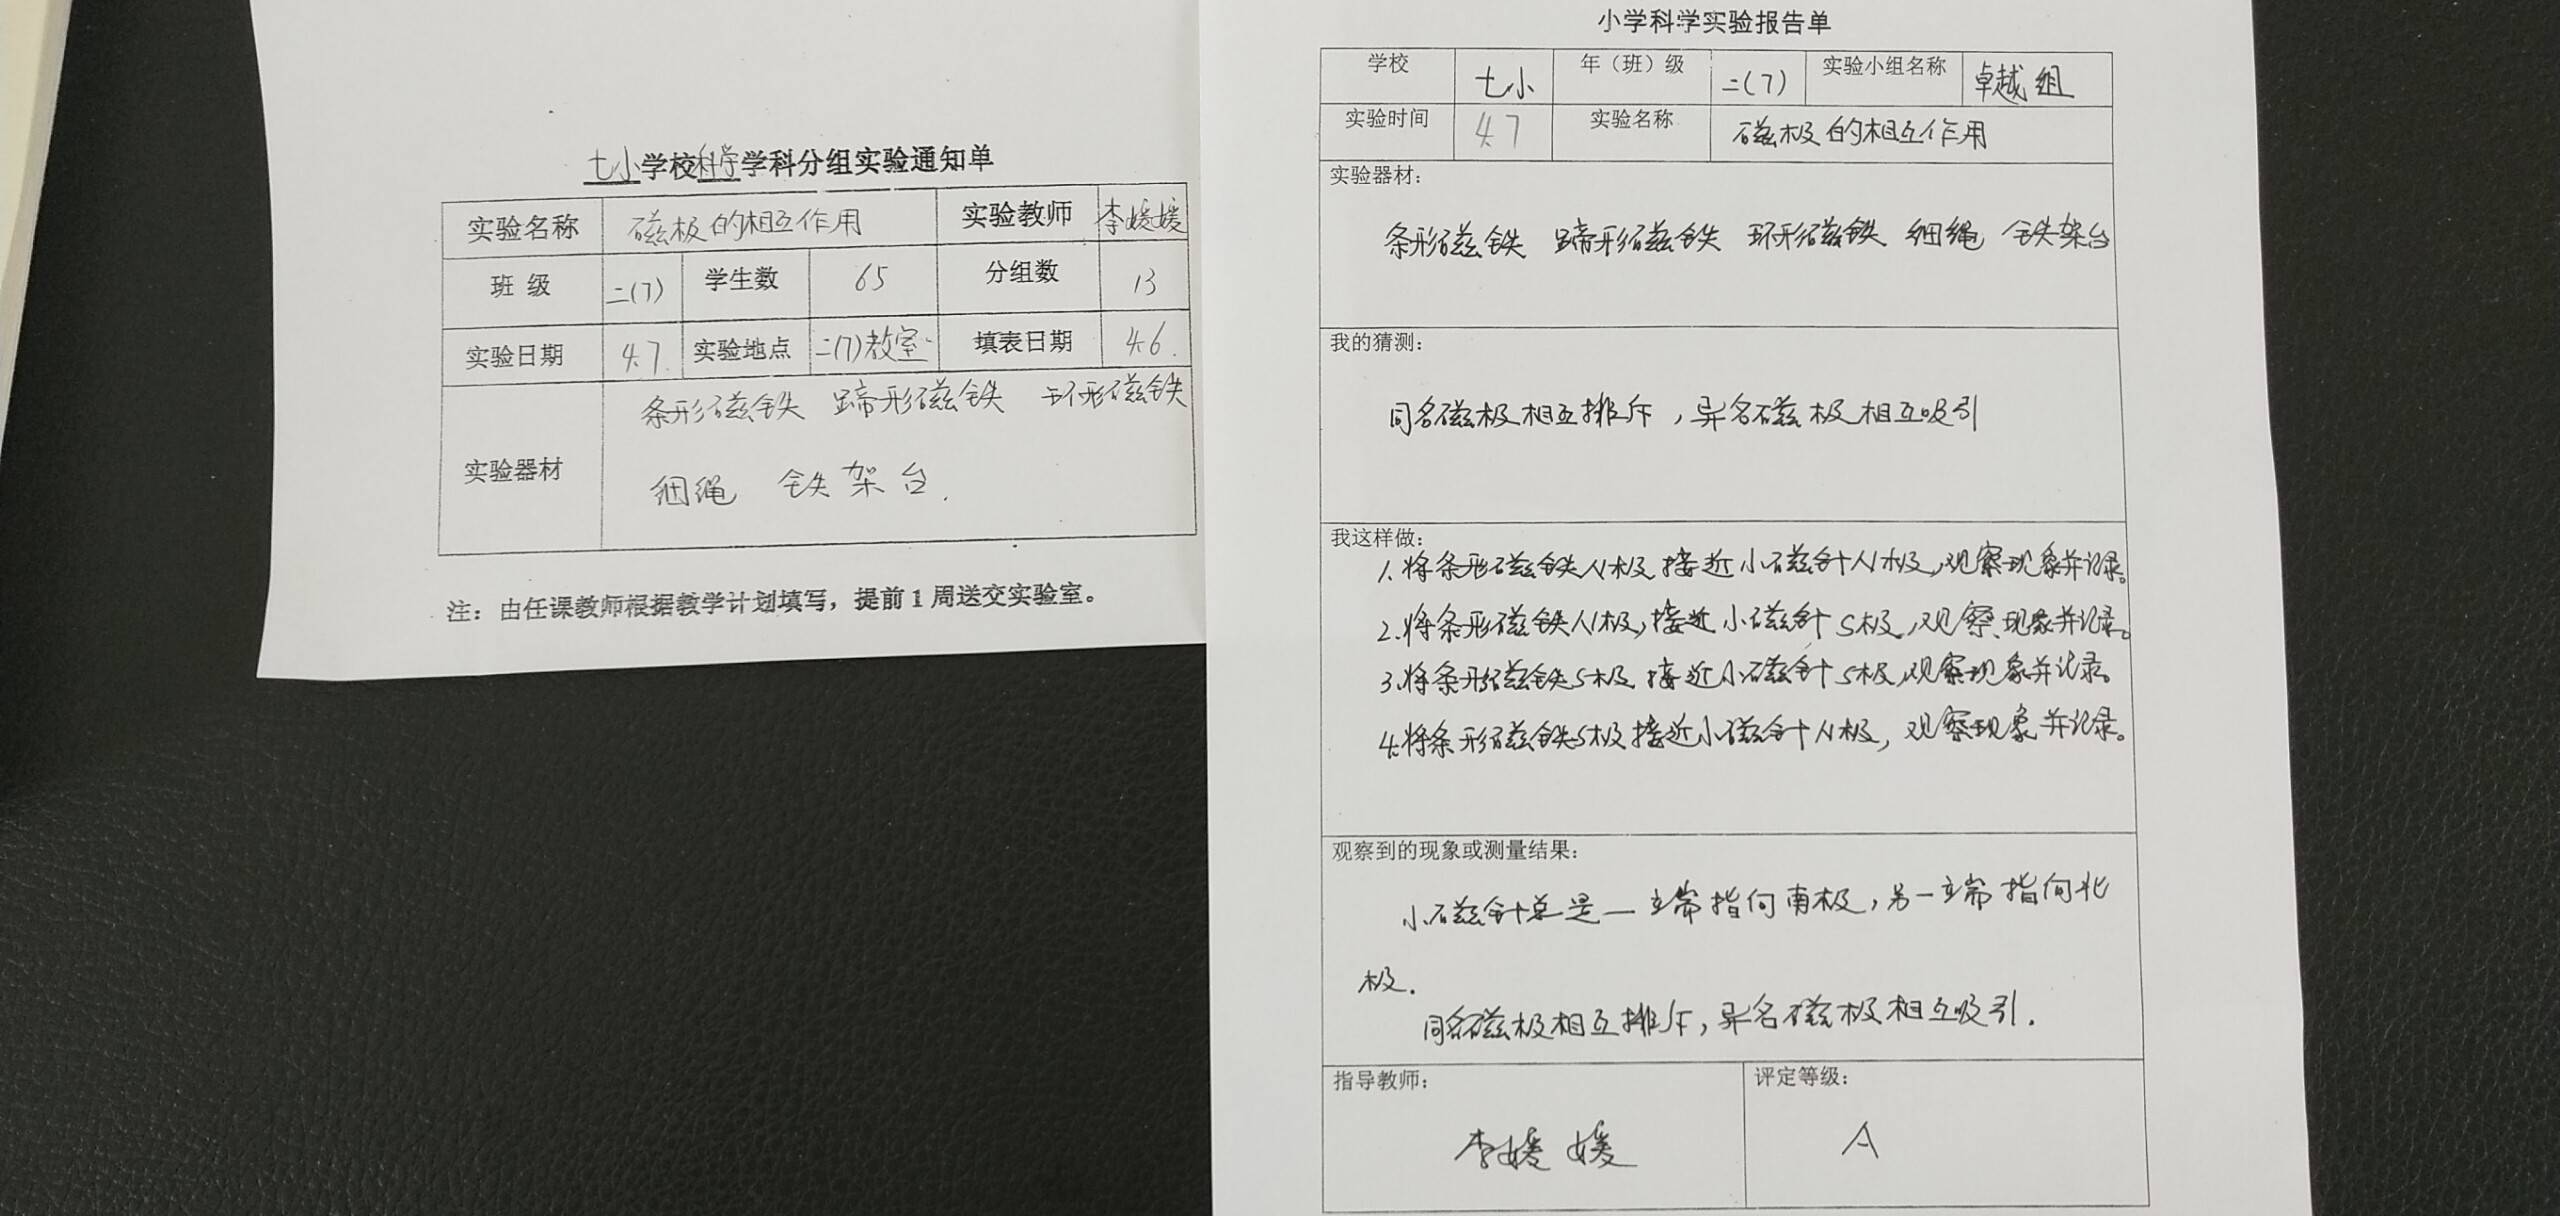 七小学校科学学科分组实验通知单
实验名称 磁极的相互作用 实验教师 李媛媛
班级 二(7) 学生数 65 分组数 13
实验日期 4.7. 实验地点 二(7)教室. 填表日期 4.6.
条形磁铁 蹄形磁铁 环形磁铁
实验器材
细绳 铁架台.
注：由任课教师根据教学计划填写，提前1周送交实验室。
小学科学实验报告单
学校 七小 年（班）级 二(7) 实验小组名称 卓越组
实验时间 4.7 实验名称 磁极的相互作用
实验器材：
条形磁铁 蹄形磁铁 环形磁铁 细绳 铁架台
我的猜测：
同名磁极相互排斥，异名磁极相互吸引
我这样做：
1.将条形磁铁N极接近小磁针N极，观察现象并记录。
2.将条形磁铁N极，接近小磁针S极，观察现象并记录。
3.将条形磁铁S极接近小磁针S极，观察现象并记录。
4.将条形磁铁S极接近小磁针N极，观察现象并记录。
观察到的现象或测量结果：
小磁针总是一端指向南极，另一端指向北
极.
同名磁极相互排斥，异名磁极相互吸引.
指导教师： 评定等级：
李媛媛 A